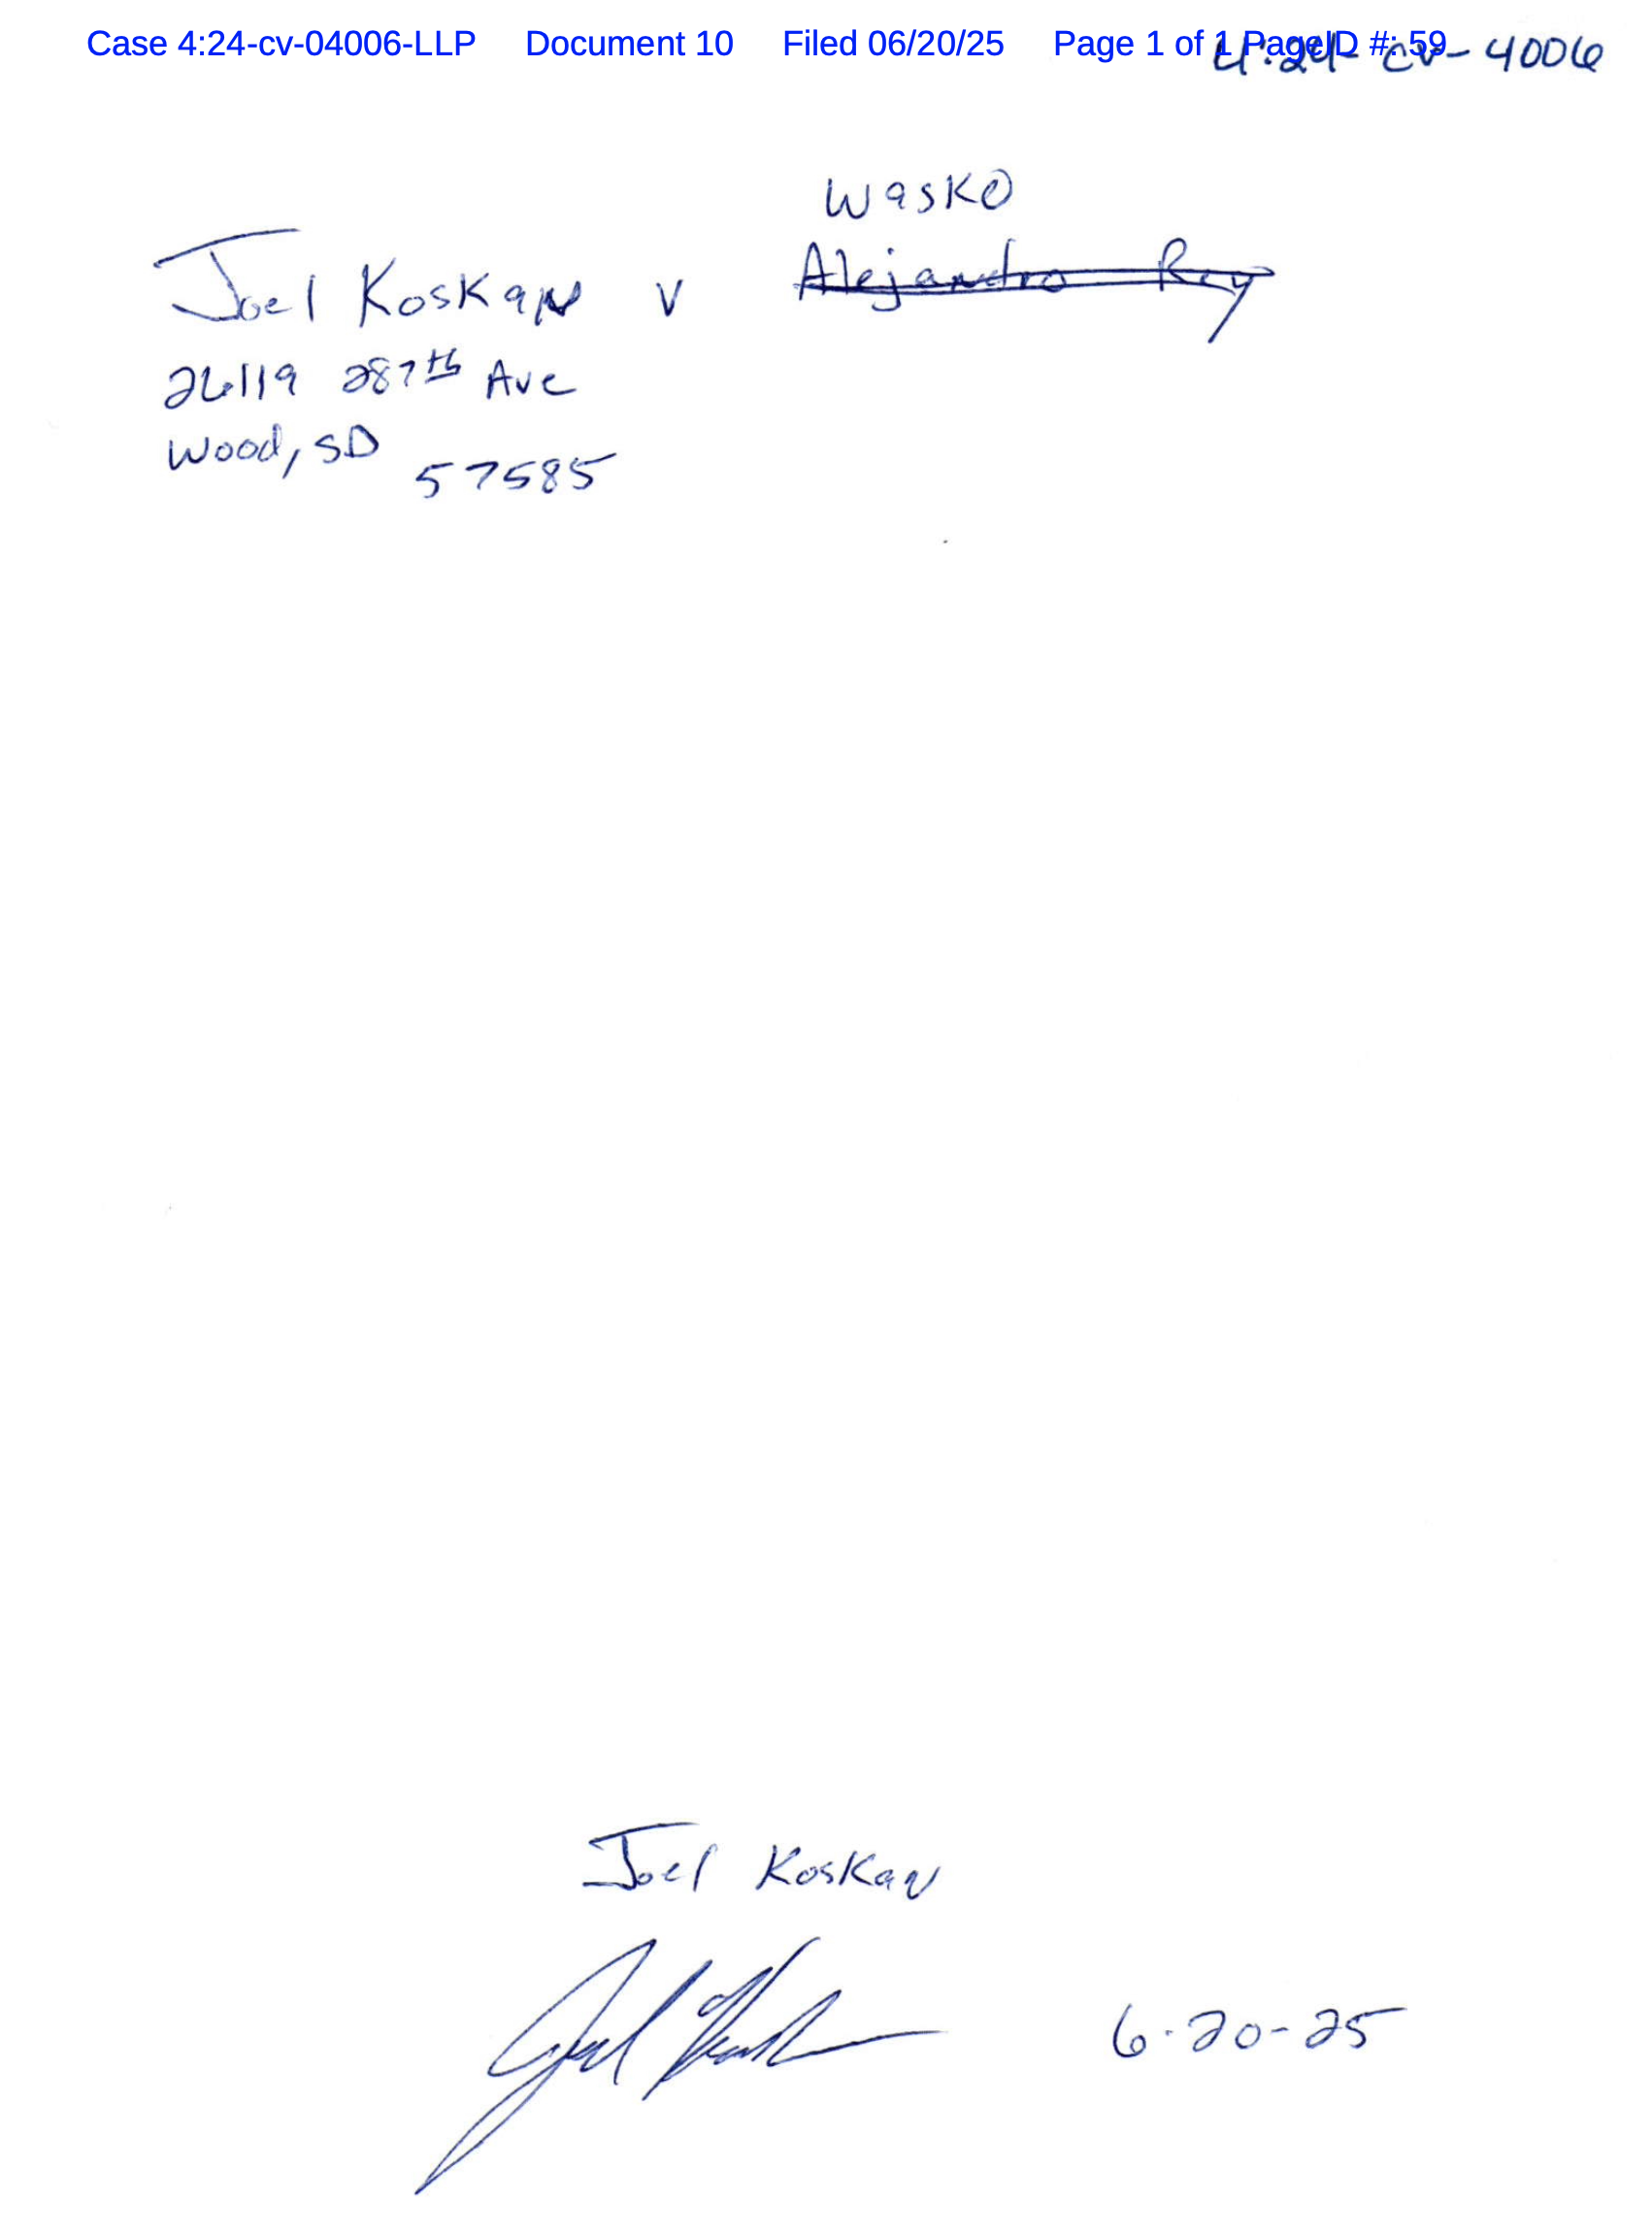 Case 4:24-cv-04006-LLP Document 10 Filed 06/20/25 Page 1 of 1 PageID #: 59
4:24-cv-4006
Wasko
Joel Koskan v Alejandro Rey
26119 287th Ave
Wood, SD 57585
Joel Koskan
6-20-25